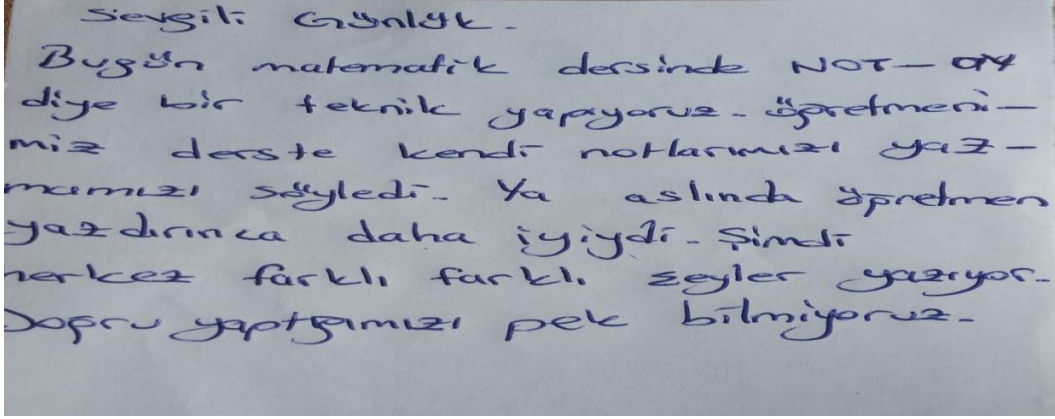 Sevgili Günlük.
Bugün matematik dersinde NOT-AY
diye bir teknik yapıyoruz. öğretmeni-
miz derste kendi notlarımızı yaz-
mamızı söyledi. Ya aslında öğretmen
yazdırınca daha iyiydi. Şimdi
herkez farklı farklı şeyler yazıyor.
Doğru yaptığımızı pek bilmiyoruz.